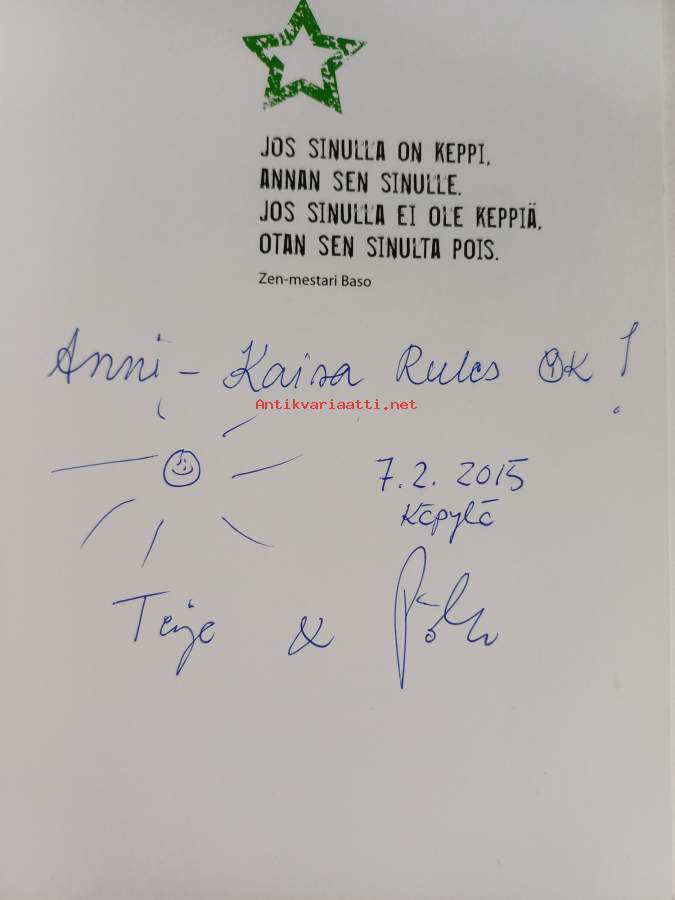 JOS SINULLA ON KEPPI,
ANNAN SEN SINULLE.
JOS SINULLA EI OLE KEPPIÄ,
OTAN SEN SINULTA POIS.
Zen-mestari Baso
Anni - Kaisa Rules OK!
Antikvariaatti.net
7.2. 2015
Käpylä
Teije &